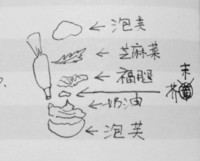 泡芙
芝麻菜
福腿
末
芥
奶油
泡芙